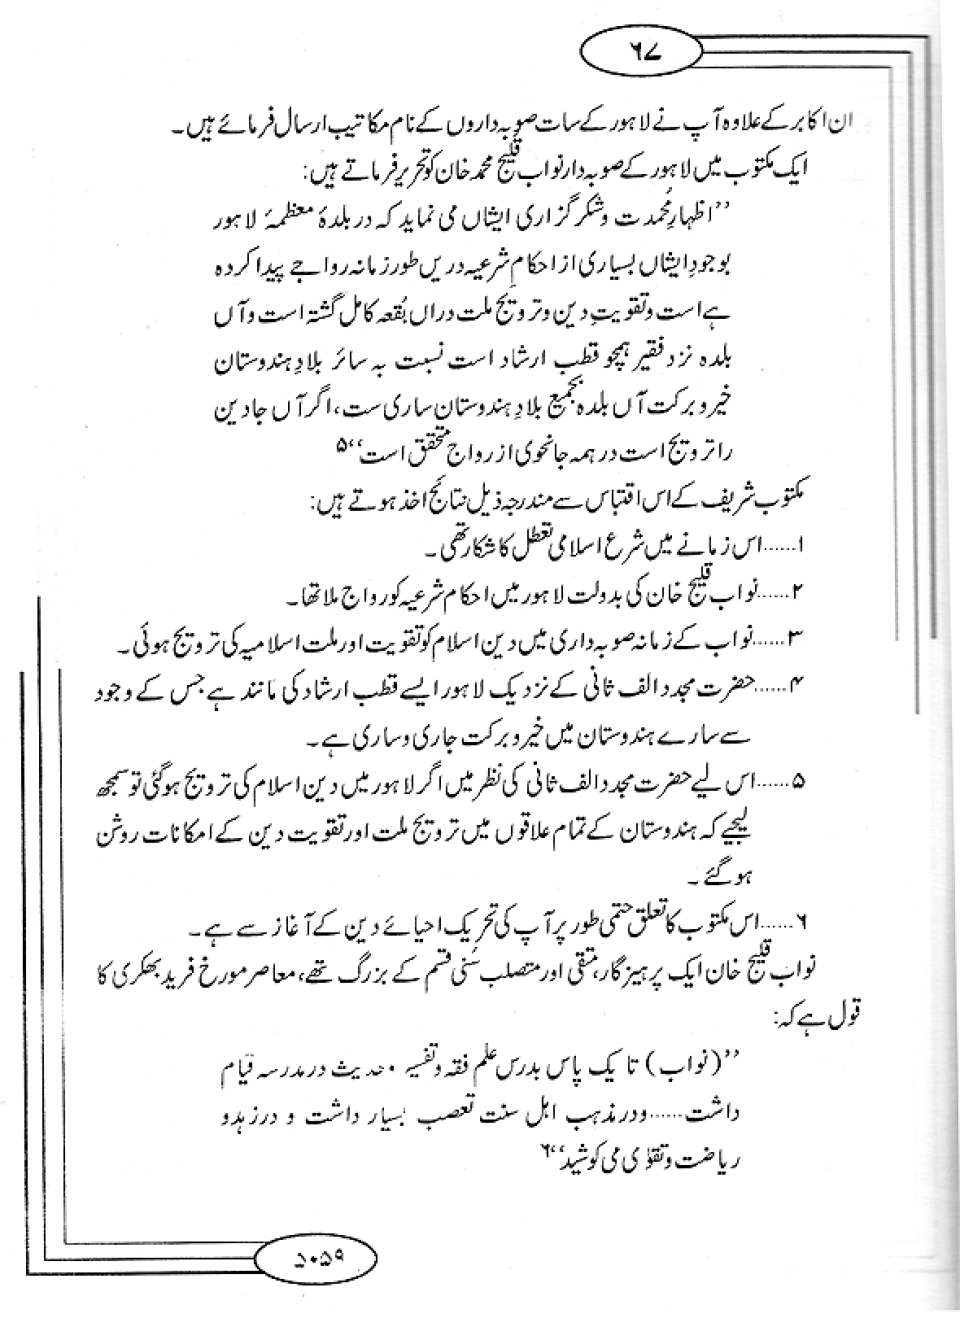 ۶۷
ان اکابر کے علاوہ آپ نے لاہور کے سات صوبہ داروں کے نام مکاتیب ارسال فرمائے ہیں۔
ایک مکتوب میں لاہور کے صوبہ دار نواب قلیج محمد خان کو تحریر فرماتے ہیں:
’’اظہارِ مُحمدت و شکر گزاری ایشاں می نماید کہ در بلدۂ معظمۂ لاہور
بوجودِ ایشاں بسیاری از احکامِ شرعیہ دریں طور زمانہ رواجے پیدا کردہ
ہے است و تقویتِ دین و ترویج ملت دراں بُقعہ کامل گشتہ است و آں
بلدہ نزد فقیر ہمچو قطب ارشاد است نسبت بہ سائر بلادِ ہندوستان
خیر و برکت آں بلدہ بجمیع بلادِ ہندوستان ساری ست، اگر آں جا دین
را ترویج است در ہمہ جا نحوی از رواج متحقق است‘‘۵
مکتوب شریف کے اس اقتباس سے مندرجہ ذیل نتائج اخذ ہوتے ہیں:
۱......اس زمانے میں شرع اسلامی تعطل کا شکار تھی۔
۲......نواب قلیج خان کی بدولت لاہور میں احکام شرعیہ کو رواج ملا تھا۔
۳......نواب کے زمانہ صوبہ داری میں دین اسلام کو تقویت اور ملت اسلامیہ کی ترویج ہوئی۔
۴......حضرت مجدد الف ثانی کے نزدیک لاہور ایسے قطب ارشاد کی مانند ہے جس کے وجود
سے سارے ہندوستان میں خیر و برکت جاری و ساری ہے۔
۵......اس لیے حضرت مجدد الف ثانی کی نظر میں اگر لاہور میں دین اسلام کی ترویج ہوگئی تو سمجھ
لیجیے کہ ہندوستان کے تمام علاقوں میں ترویج ملت اور تقویت دین کے امکانات روشن
ہوگئے۔
۶......اس مکتوب کا تعلق حتمی طور پر آپ کی تحریک احیائے دین کے آغاز سے ہے۔
نواب قلیج خان ایک پرہیزگار، متقی اور متصلب سُنی قسم کے بزرگ تھے، معاصر مورخ فرید بھکری کا
قول ہے کہ:
’’(نواب) تا یک پاس بدرس علم فقہ و تفسیر و حدیث در مدرسہ قیام
داشت......ودر مذہب اہل سنت تعصب بسیار داشت و در زہد و
ریاضت و تقوٰی می کوشید‘‘۶
۵۰۵۹